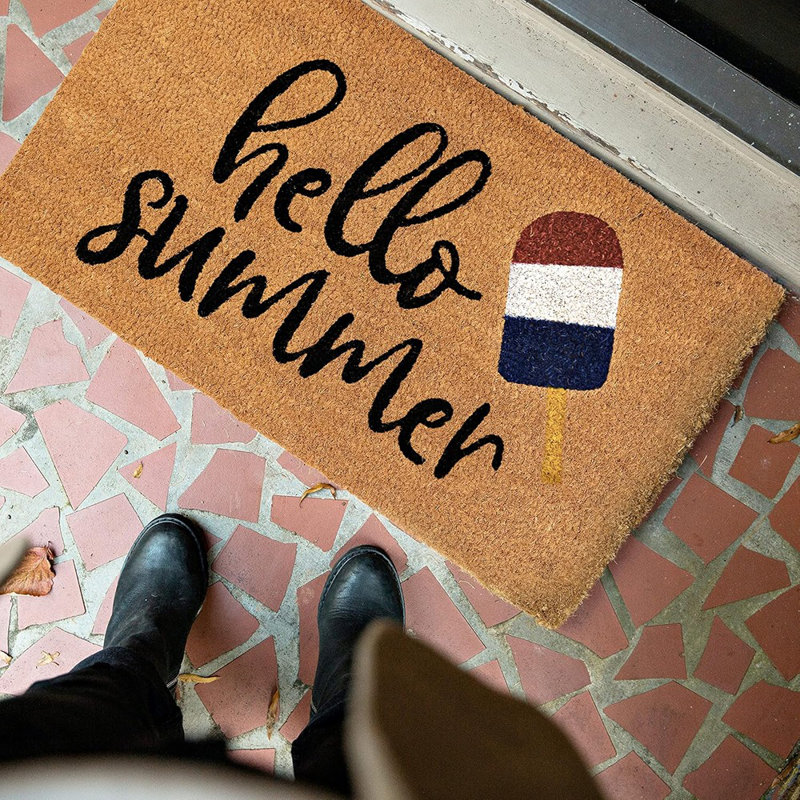 hello
summer